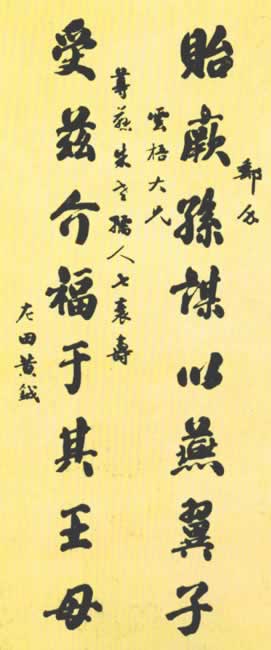 貽厥孫謀以燕翼子
鄭
雲梧大兄
尊慈朱孺人七袠壽
受茲介福于其王母
左田黃鉞